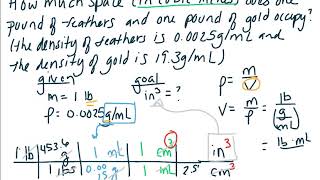 How much space (in cubic inches) does one
pound of feathers and one pound of gold occupy?
(the density of feathers is 0.0025g/mL and
the density of gold is 19.3g/mL)
given
goal
m = 1 lb
in³ = ?
ρ = 0.0025g/mL
ρ = m/V
V = m/ρ = lb/(g/mL)
= lb·mL
1 lb 453.6 g 1 mL 1 cm³ in³
1 lb 0.00 g 1 mL 2.5 cm³